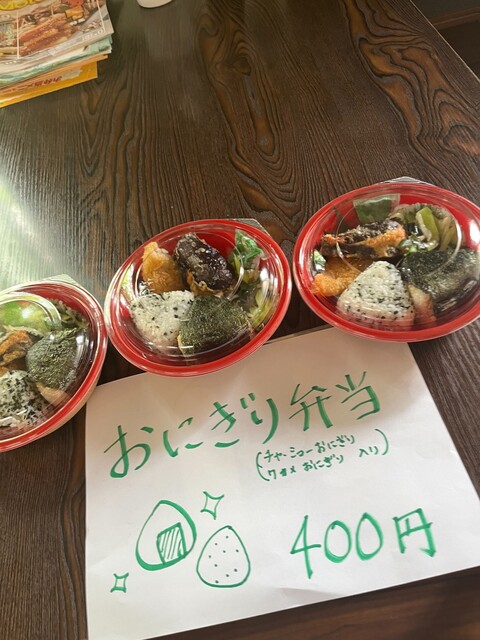 おにぎり弁当
(チャーシューおにぎり
ワカメおにぎり 入り)
400円